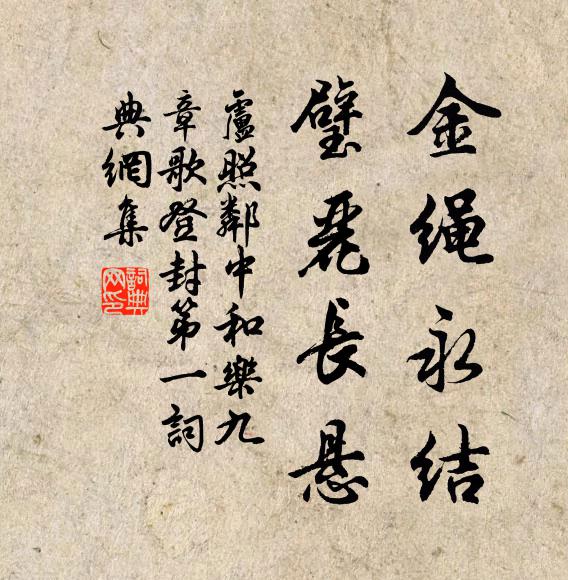 金绳永结
璧麗長悬
盧照鄰中和樂九
章歌登封第一詞
典網集
詞典网印